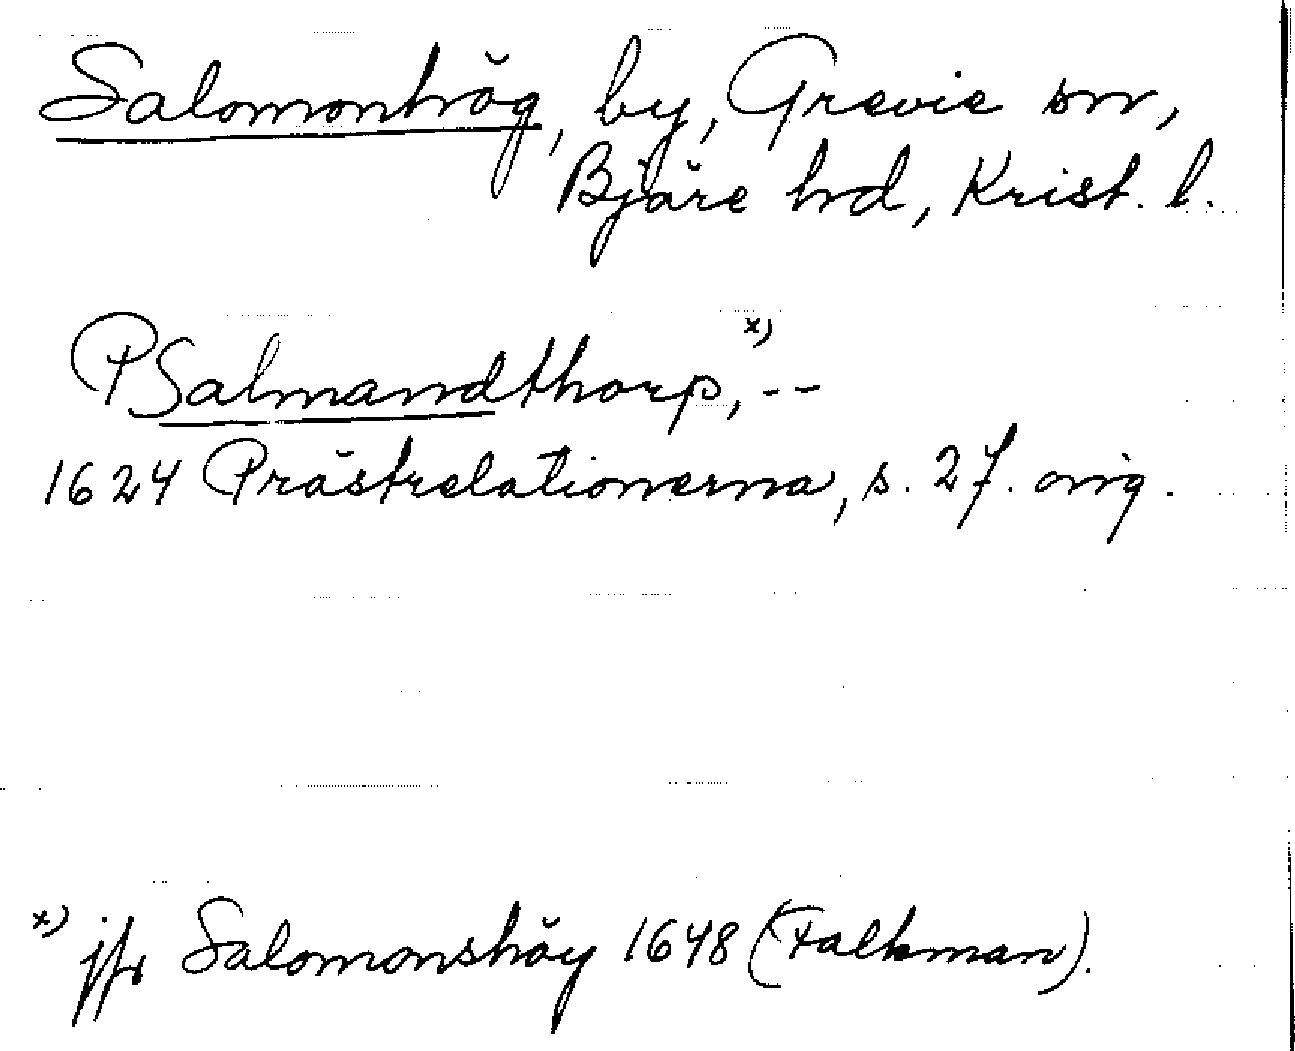 Salomonhög, by, Grevie sn,
Bjäre hd, Krist. l.
PSalmandthorp,ˣ⁾ --
1624 Prästrelationerna, s. 27. orig.
x) jfr Salomonshöy 1648 (Falkman).